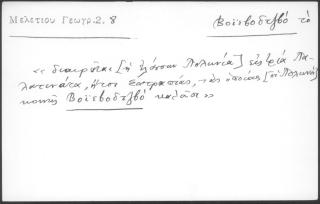 Μελετίου Γεωγρ. 2. 8
Βοϊεβοδτζβό τό
« διαιρεῖται [ἡ ἐλάσσων Πολωνία] εἰς τρία Πα-
λατινάτα, ἤτοι Σατραπίας, τὰς ὁποίας [οἱ Πολωνοὶ]
κοινῶς Βοϊεβοδτζβό καλοῦσι »